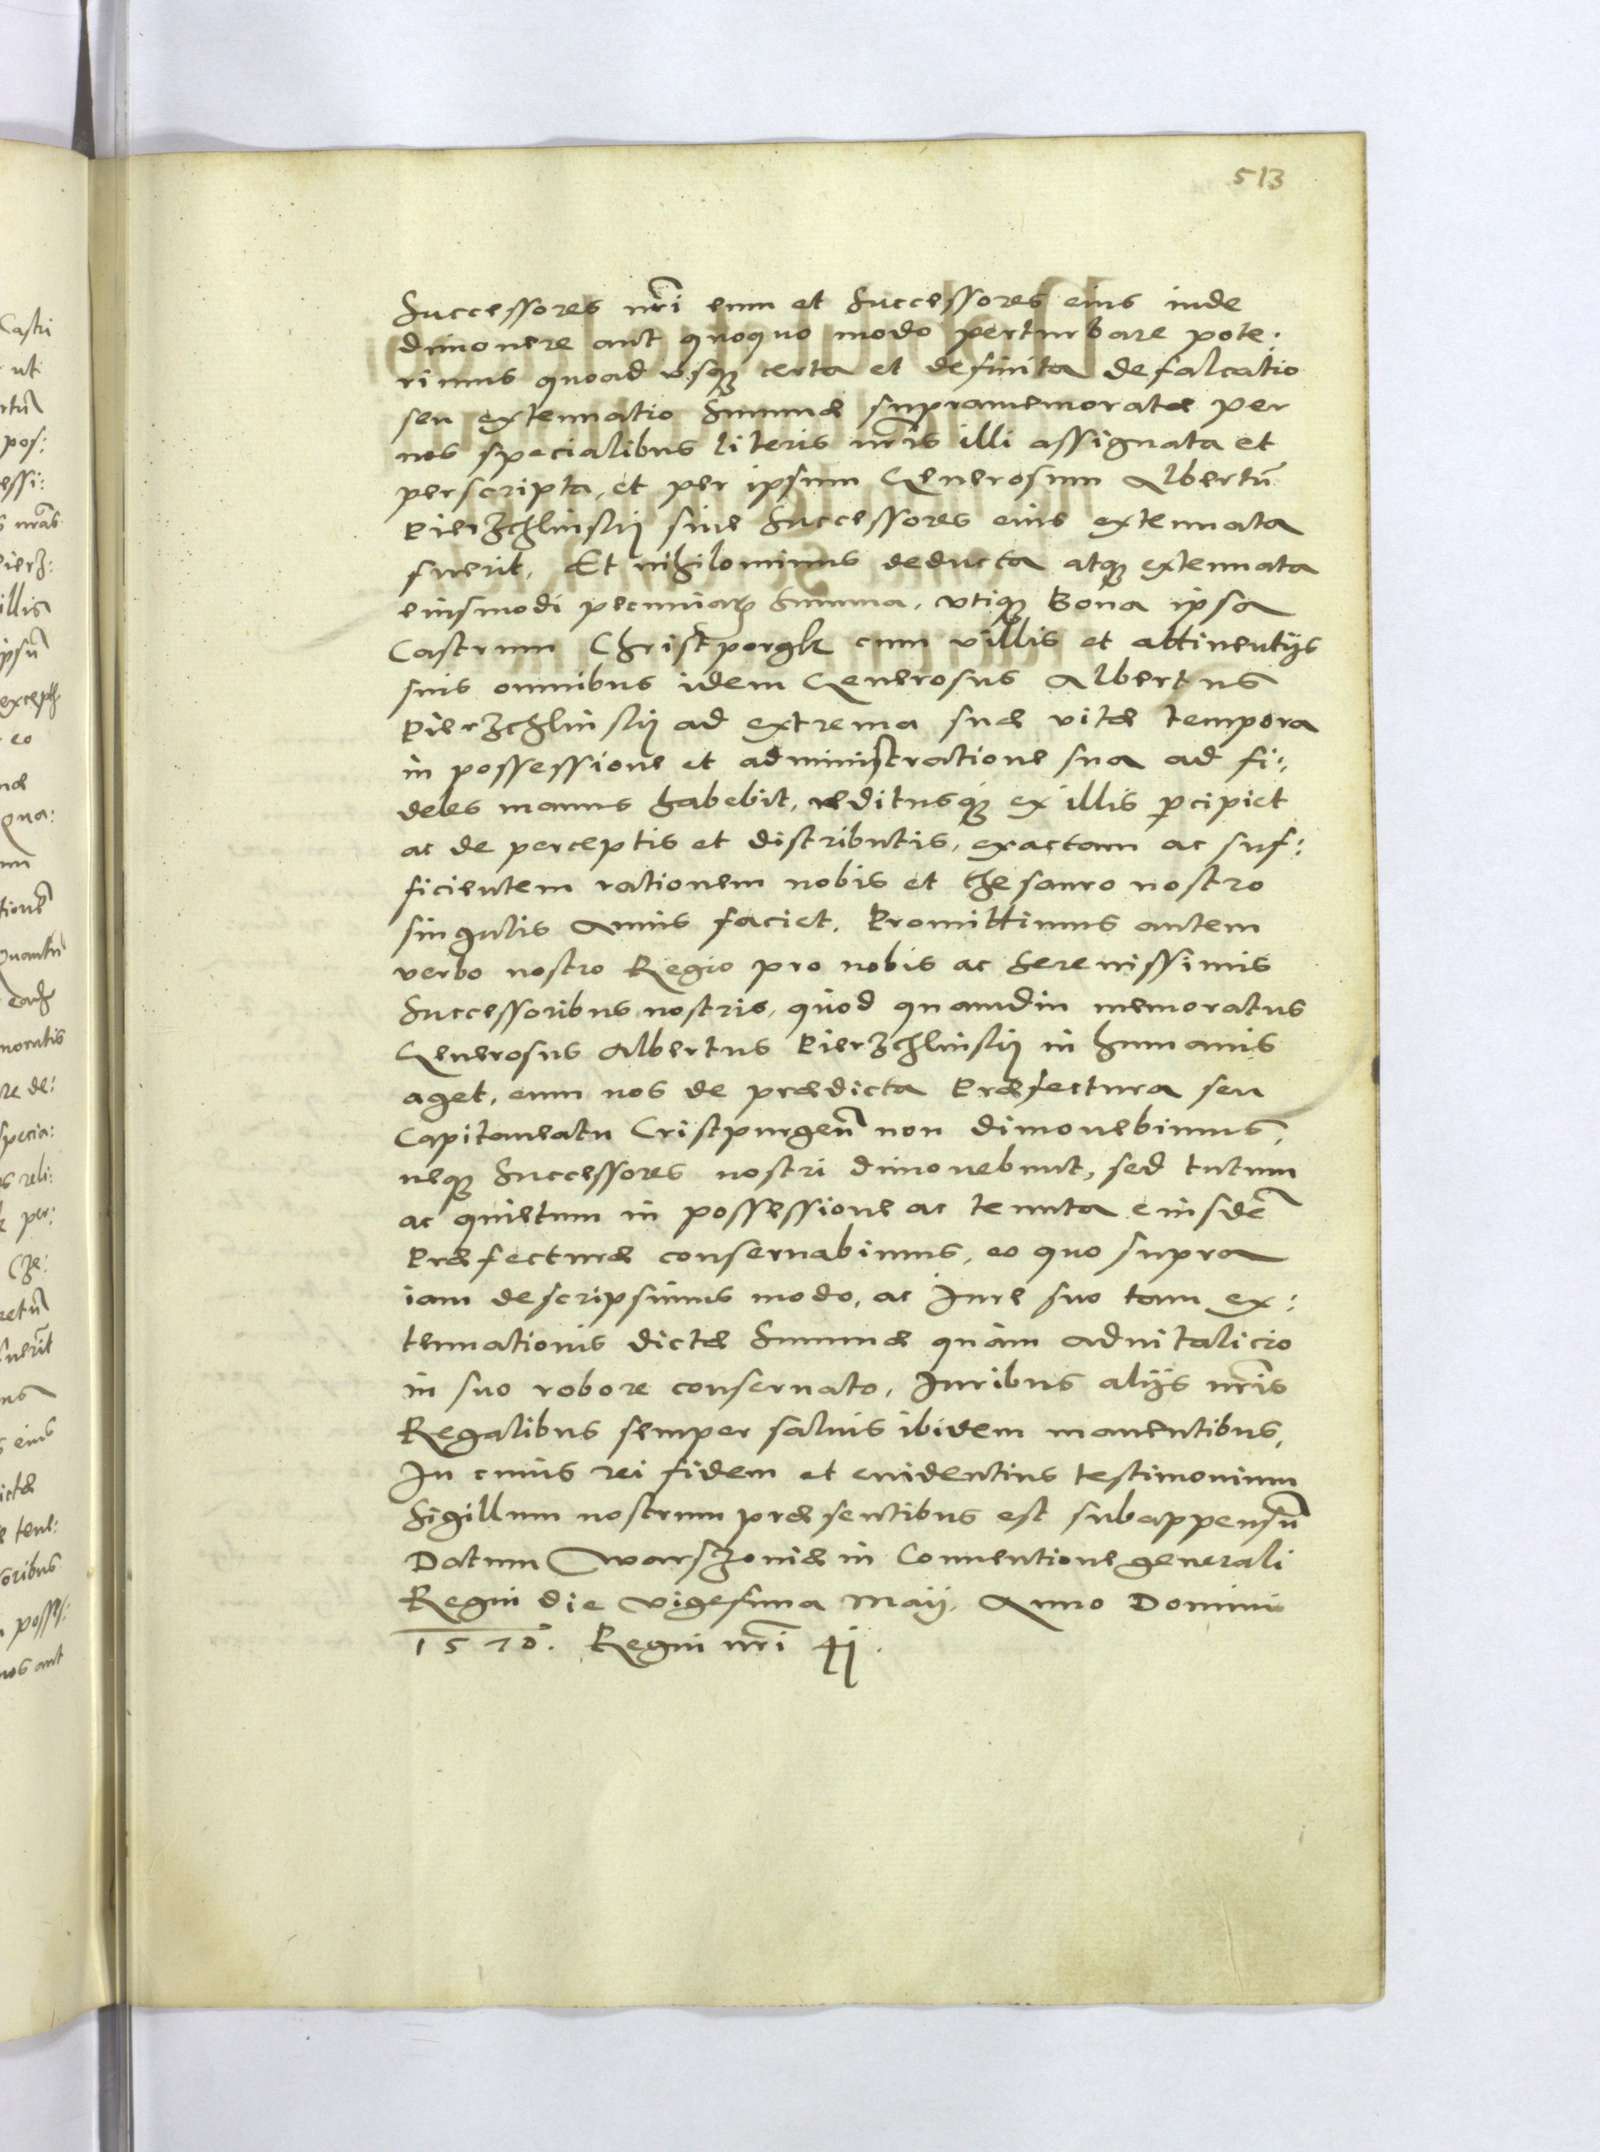 513
Successores nr̄i eum et Successores eius inde
dimouere aut quoquo modo perturbare pote:
rimus quoad usq́ꝫ certa et definita defalcatio
seu extenuatio Summæ supramemoratæ per
nos specialibus literis nr̄is illi assignata et
perscripta, et per ipsum Generosum Albertū
Pierzchlinskij siue Successores eius extenuata
fuerit, Et nihilominus deducta atqꝫ extenuata
eiusmodi pecuniaꝝ Summa, vtiqꝫ Bona ipsa
Castrum Christporgk cum villis et attinentijs
suis omnibus idem Generosus Albertus
Pierzchlinskij ad extrema suæ vitæ tempora
in possessione et administratione sua ad fi:
deles manus habebit, reditusqꝫ ex illis ꝑcipiet
ac de perceptis et distributis, exactam ac suf:
ficientem rationem nobis et thesauro nostro
singulis annis faciet. Promittimus autem
verbo nostro Regio pro nobis ac Serenissimis
Successoribus nostris, quòd quamdiu memoratus
Generosus Albertus Pierzchlinskij in humanis
aget, eum nos de prædicta Præfectura seu
Capitaneatu Cristpurgeñ non dimouebimus,
neqꝫ Successores nostri dimouebunt, sed tutum
ac quietum in possessione ac tenuta eiusdē
Præfecturæ conseruabimus, eo quo supra
iam descripsimus modo, ac Iure suo tam ex:
tenuationis dictæ Summæ quàm aduitalicio
in suo robore conseruato, Iuribus alijs nr̄is
Regalibus semper saluis ibidem manentibus,
In cuius rei fidem et euidentius testimonium
Sigillum nostrum præsentibus est subappensū
Datum Warszouiæ in Conuentione generali
Regni die vigesima Maij. Anno Domini
1570. Regni nr̄i 41.